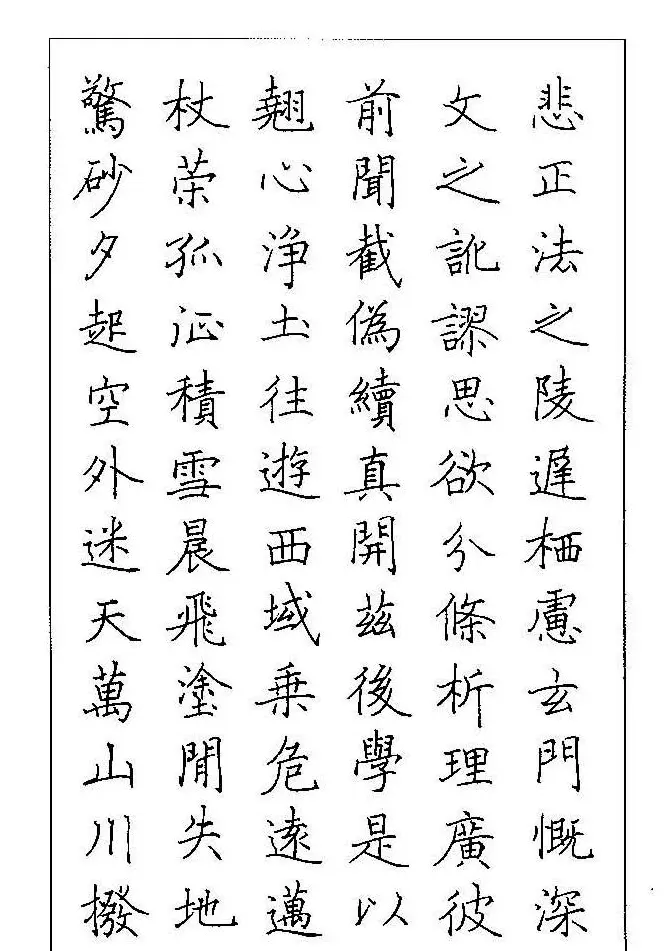 悲正法之陵遲栖慮玄門慨深
文之訛謬思欲分條析理廣彼
前聞截偽續真開茲後學是以
翹心浄土往遊西域乗危遠邁
杖荣孤征積雪晨飛塗閒失地
驚砂夕起空外迷天萬山川撥